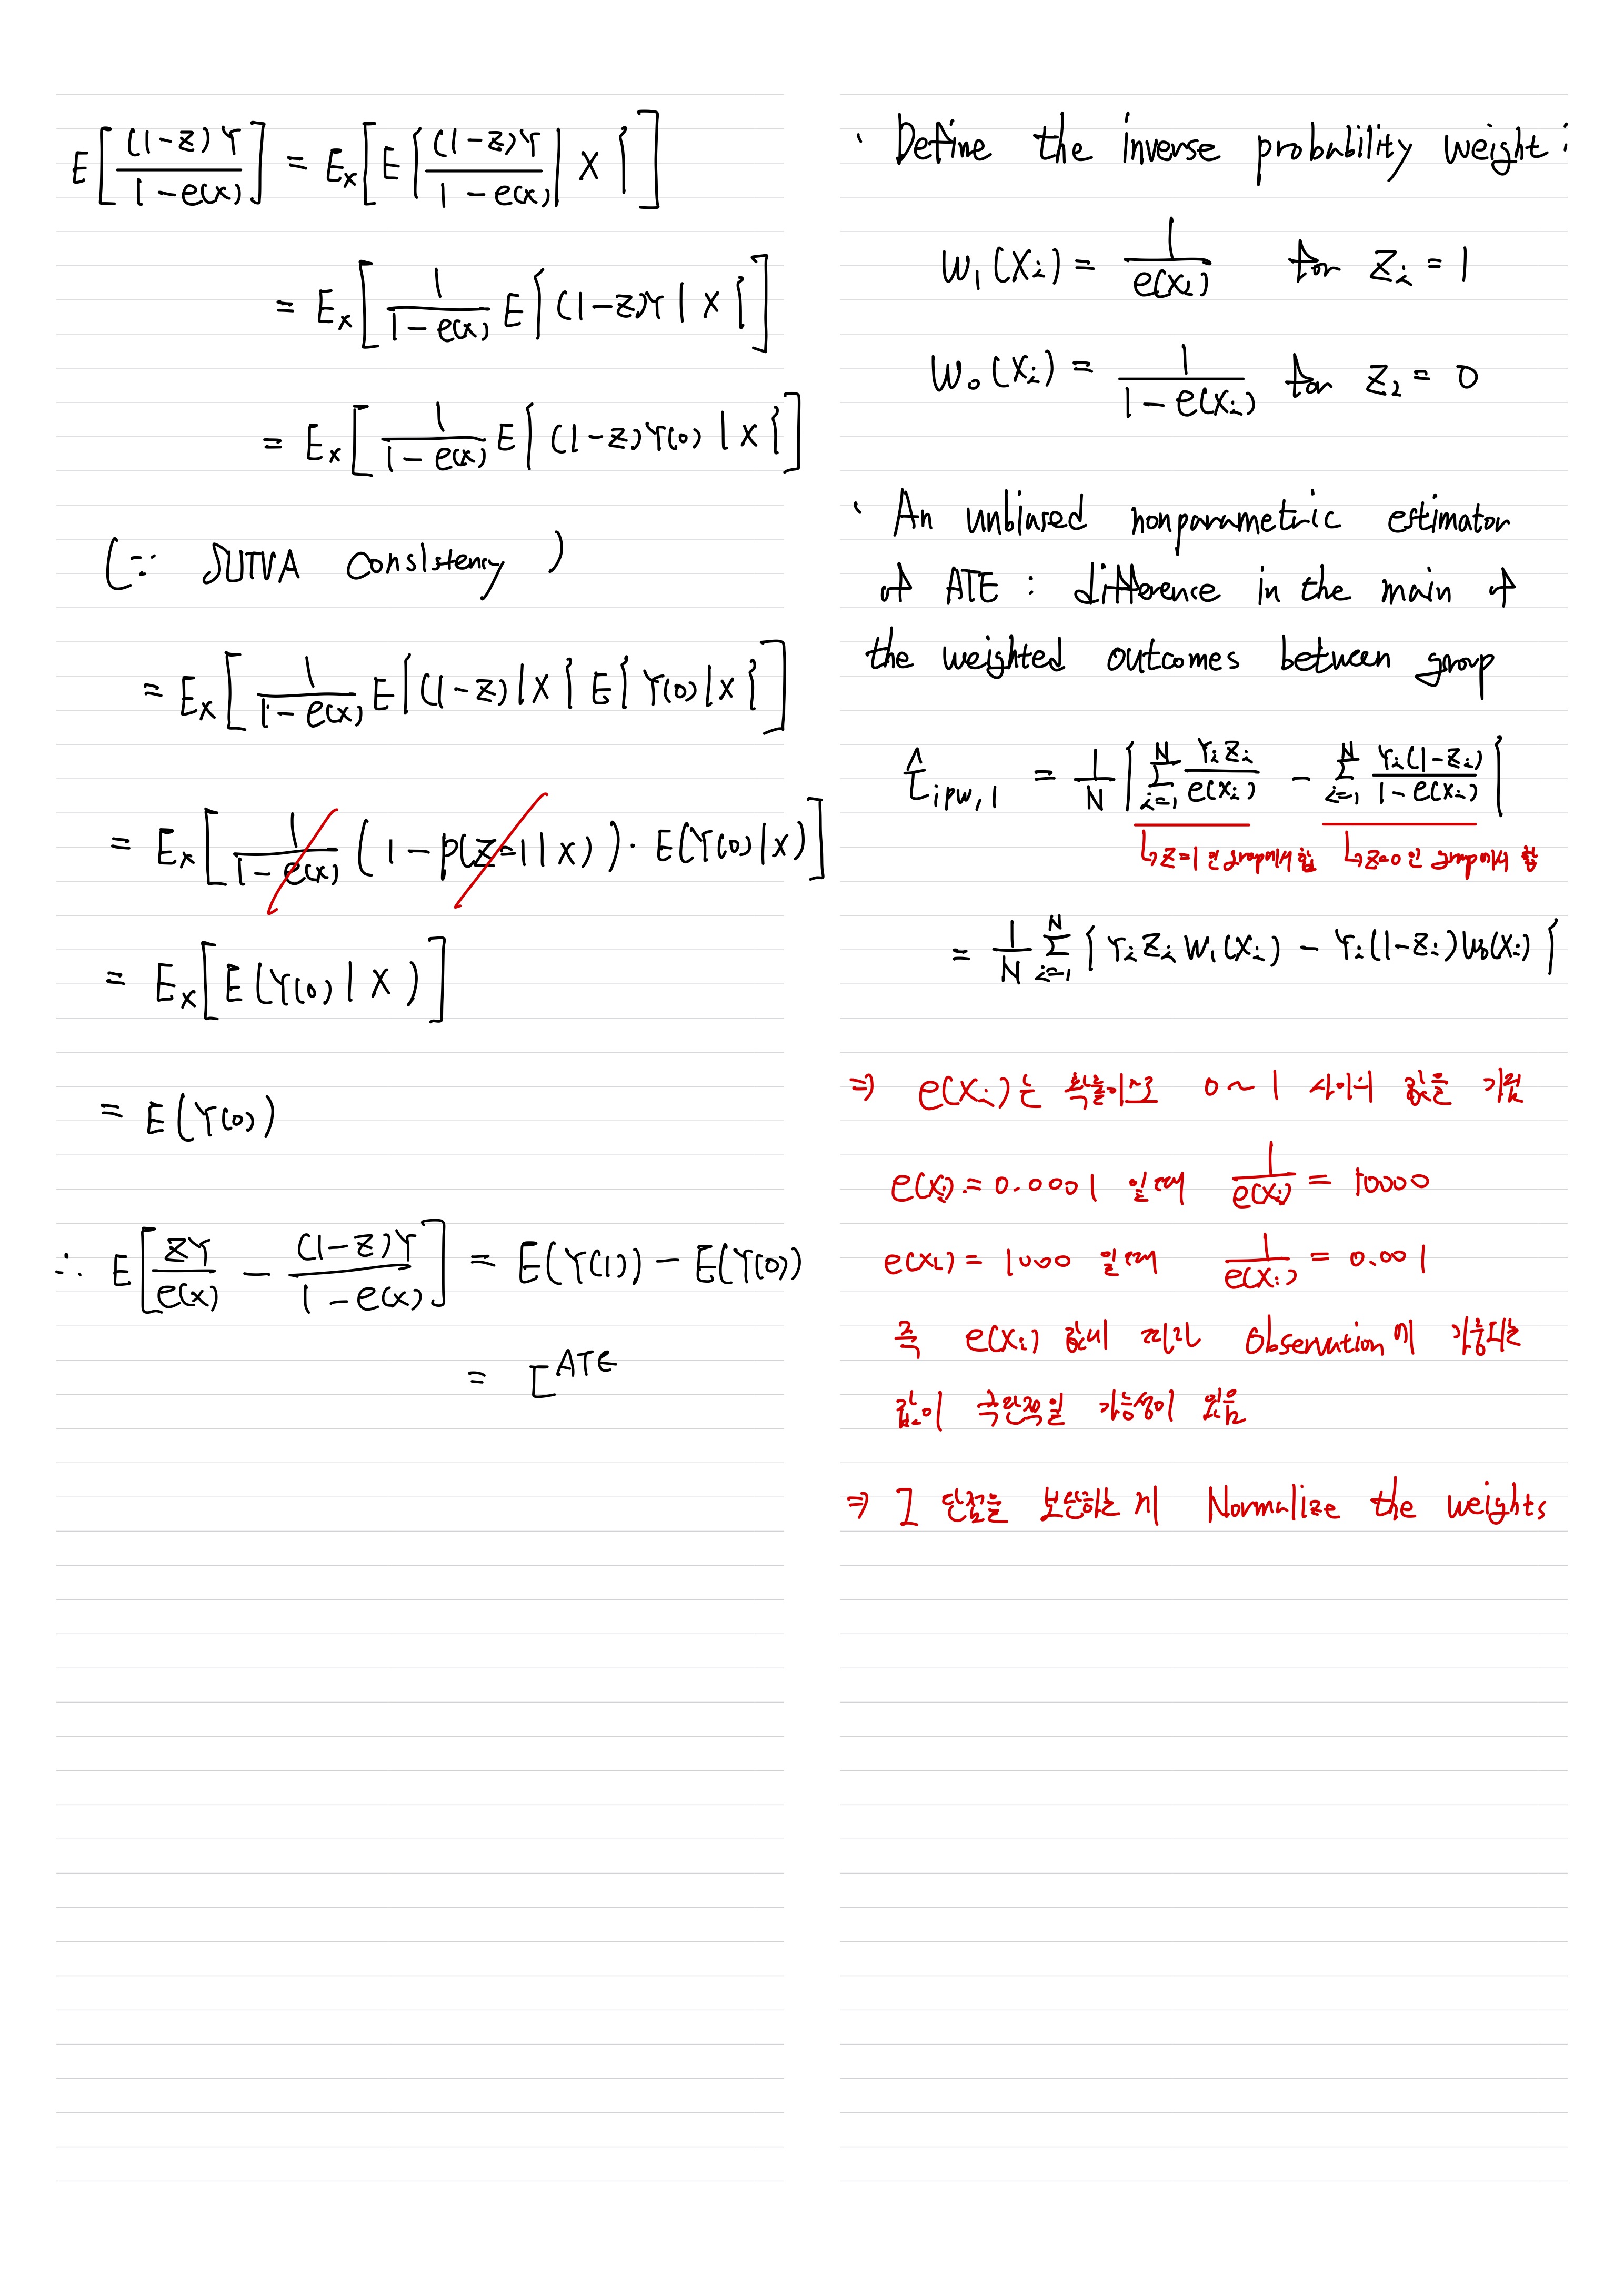 E[(1-z)Y / 1-e(x)] = Ex[E{(1-z)Y / 1-e(x) | X}]
= Ex[1 / 1-e(x) E{(1-z)Y | X}]
= Ex[1 / 1-e(x) E{(1-z)Y(0) | X}]
(∵ SUTVA Consistency)
= Ex[1 / 1-e(x) E{(1-z) | X} E{Y(0) | X}]
= Ex[1 / 1-e(x) (1-P(Z=1 | X)) · E(Y(0) | X)]
= Ex[E(Y(0) | X)]
= E(Y(0))
∴ E[ZY / e(x) - (1-z)Y / 1-e(x)] = E(Y(1)) - E(Y(0))
= τ^ATE
· Define the inverse probability weight :
W₁(Xi) = 1 / e(Xi) for Zi = 1
W₀(Xi) = 1 / 1-e(Xi) for Zi = 0
· An unbiased nonparametric estimator
of ATE : difference in the main of
the weighted outcomes between group
τ̂ipw,1 = 1/N {Σ_{i=1}^{N} YiZi / e(Xi) - Σ_{i=1}^{N} Yi(1-Zi) / 1-e(Xi)}
↳ Z=1 인 group에서 합 ↳ Z=0 인 group에서 합
= 1/N Σ_{i=1}^{N} {YiZiW₁(Xi) - Yi(1-Zi)W₀(Xi)}
⇒ e(Xi)는 확률이므로 0~1 사이의 값을 가짐
e(Xi) = 0.0001 일 때 1 / e(Xi) = 10000
e(Xi) = 1000 일 때 1 / e(Xi) = 0.001
즉 e(Xi) 값에 따라 Observation에 가중되는
값이 극단적일 가능성이 있음
⇒ 그 단점을 보완하는 게 Normalize the weights